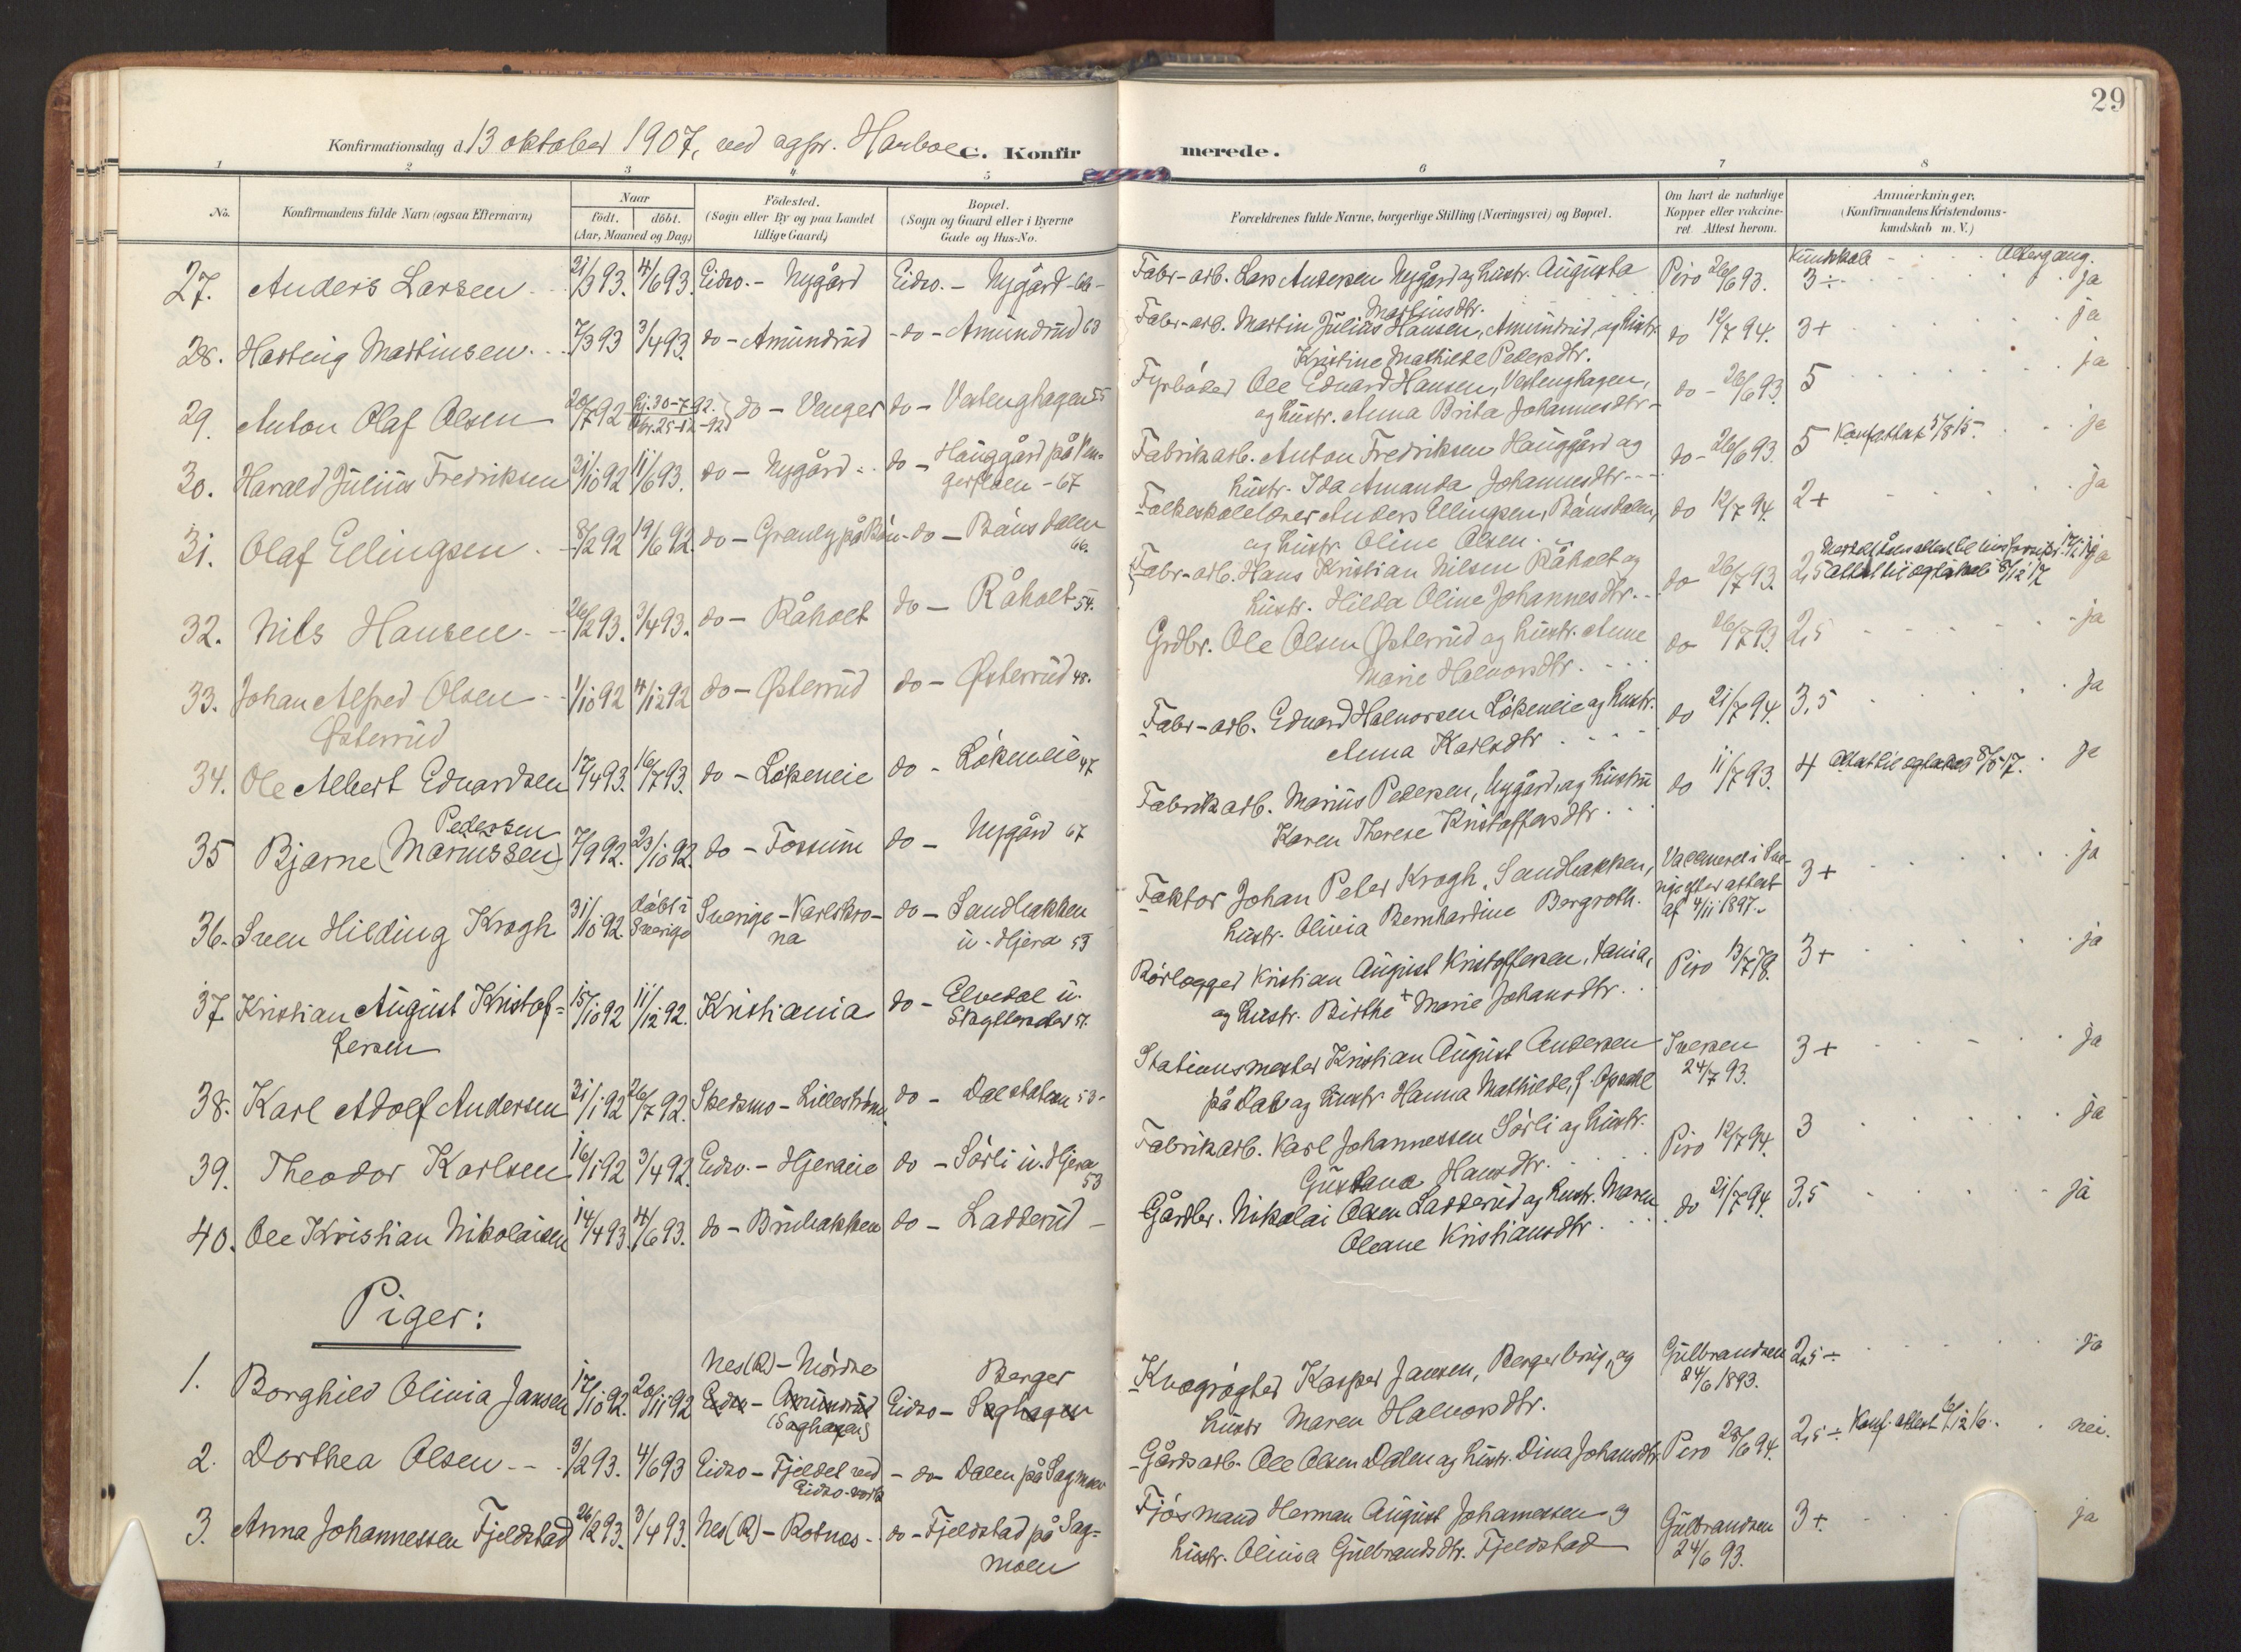 29
Konfirmationsdag d. 13 oktober 1907, ved Harboe C. Konfirmerede.
1 2 3 4 5 6 7 8
No. Konfirmandens fulde Navn (ogsaa Efternavn) Naar födt. döbt. (Aar, Maaned og Dag) Födested. (Sogn eller By og paa Landet tillige Gaard) Bopæl. (Sogn og Gaard eller i Byerne Gade og Hus-No. Forældrenes fulde Navne, borgerlige Stilling (Næringsvei) og Bopæl. Om havt de naturlige Kopper eller vaccineret. Attest herom. Anmærkninger, (Konfirmandens Kristendomskundskab m. V.)
Kundskab Altergang.
27. Anders Larsen 21/3 93. 4/6 93. Eidsv. - Nygård Eidsv. - Nygård - 66 - Fabr-arb. Lars Andersen Nygård og hustr. Augusta Piro 26/6 93. 3÷ ja
Martinsdtr.
28. Hartvig Martinsen 7/3 93 3/4 93. do - Amundrud - do - Amundrud 63 Fabr-arb. Martin Julius Hansen, Amundrud, og hustr. do 12/7 94. 3+ ja
Kristine Mathilde Pedersdtr.
29. Anton Olaf Olsen 20/7 92 Hj. 30-7-92. Kir. 25-12-92 do - Venger do - Vestenghagen 55 Fyrböter Ole Edvard Hansen, Vestenghagen, do - 26/6 93. 5 ja
og hustr. Anna Brita Johannesdtr -
30. Harald Julius Fredriksen 31/10 92 11/6 93. do - Nygård do - Hauggård på Ven- Fabrikarb. Anton Fredriksen Hauggård og do - 26/6 93. 5 Konfattest 5/8 15. ja
gerfloen - 67 hustr. Ida Amanda Johannesdtr.
31. Olaf Ellingsen 8/2 92 19/6 92. do - Granly på Bön do - Bönsdalen Folkeskolelærer Anders Ellingsen, Bönsdalen, do 12/7 94. 2+ ja
66. og hustr. Oline Olsen.
32. Nils Hansen 26/2 93. 3/4 93. do - Råholt do - Råholt 54. Fabr-arb. Hans Kristian Nilsen Råholt og do 26/7 93. 2,5 ja
hustr. Hilda Oline Johannesdtr.
33. Johan Alfred Olsen 1/10 92 4/12 92 do - Østerrud do - Østerrud 48. Grdbr. Ole Olsen Østerrud og hustr. Anne do 26/7 93. 2,5 ja
Østerrud Marie Halvorsdtr.
34. Ole Albert Edvardsen 17/4 93. 16/7 93. do - Lökeneie do - Lökeneie 47 Fabr-arb. Edvard Halvorsen Lökeneie og hustr. do 21/7 94. 3,5 ja
Anna Karlsdtr
Pedersen
35 Bjarne (Mariussen) 7/9 92. 23/10 92. do - Fossum do - Nygård 67 Fabrikarb. Marius Pedersen, Nygård, og hustru do 11/7 93. 4 ja
Karen Therese Kristoffersdtr.
36. Sven Hilding Krogh 31/10 92. döbt i Sverige Sverige - Karlskrona do - Sandbakken u. Hjera 53 Faktor Johan Peter Krogh, Sandbakken, Vaccineret i Sverige efter attest af 4/11 1897. 3+ ja
hustr. Olivia Bernhardine Bergroth.
37. Kristian August Kristof- 15/10 92 11/12 92. Kristiania do - Elvedal u. Rörlægger Kristian August Kristoffersen, tania, Piro 13/7 3+ ja
fersen og hustr. Birthe + Marie Johansdtr.
38. Karl Adolf Andersen 31/1 92 26/7 92. Skedsmo - Lilleströmn do - Dal station 53 - Stationsmester Kristian August Andersen Iversen 24/7 93. 3+ ja
på Dal og hustr. Hanna Mathilde, f. Opsahl
39. Theodor Karlsen 16/1 92 3/4 92. Eidsv. - Hjeraeie do - Sörli u. Hjera 53 Fabrikarb. Karl Johannessen Sörli og hustr. Piro 12/7 94. 3 ja
Gustava Hansdtr.
40. Ole Kristian Nikolaisen 14/4 93. 4/6 93. do - Brubakken do - Ladderud - Gårdbr. Nikolai Olsen Ladderud og hustr. Maren do 21/7 94. 3,5 ja
Oleane Kristiansdtr.
Piger:
1. Borghild Olivia Jansen 17/10 92. 20/11 92 Nes (R) - Mördre Berger Kvægrögter Kasper Jansen, Berger brug, og Gulbrandsen 24/6 1893. 2,5÷ ja
Eidsv - Amundrud (Saghagen) Eidsv - Saghagen hustr Maren Halvorsdtr.
2. Dorthea Olsen 9/2 93. 4/6 93 Eidsv - Fjeldet ved Eidsv. verk - do - Dalen på Sagmoen Gårdsarb. Ole Olsen Dalen og hustr. Dina Johansdtr. Piro 28/6 94. 2,5÷ Konf. attest 6/12 16. nei.
3. Anna Johannessen Fjeldstad 26/2 93. 3/4 93. Nes (R) - Rotnes do - Fjeldstad på Sag- Fjösmand Herman August Johannessen og Gulbrandsen 24/6 93. 3+. ja
moen hustr. Olivia Gulbrandsdtr. Fjeldstad